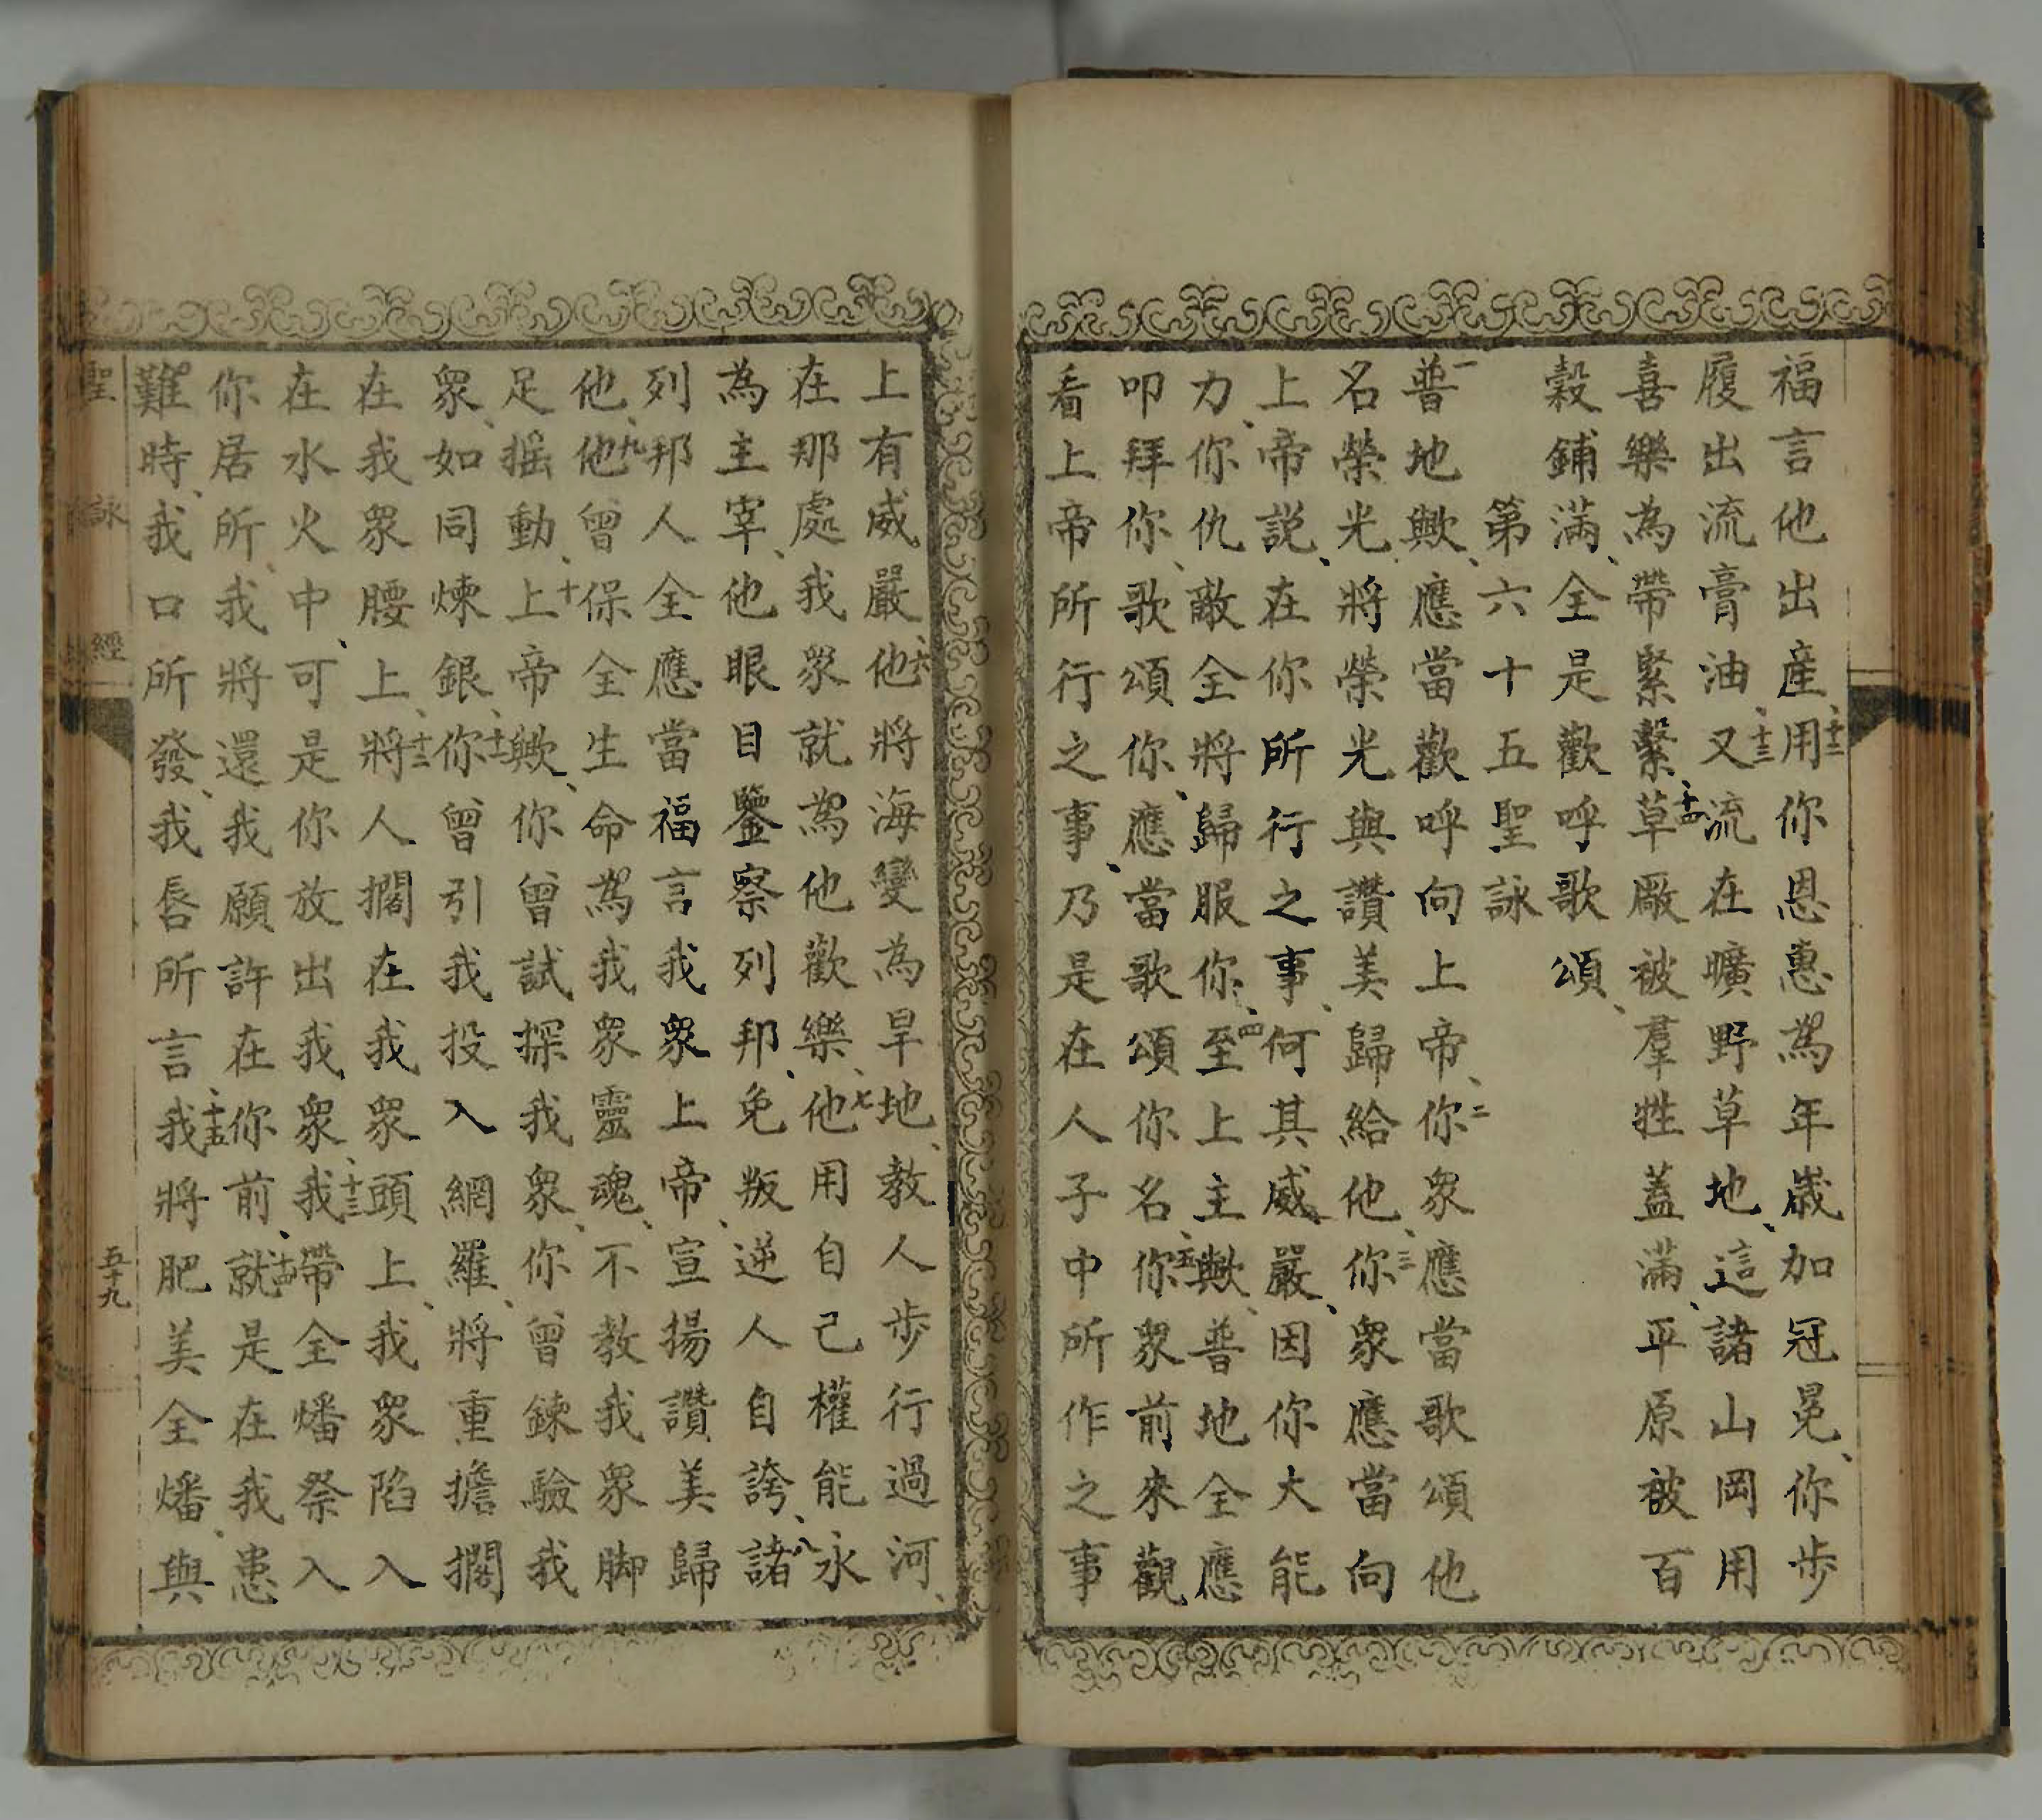 福言他出產、十二用你恩惠為年歲加冠冕、你步
履出流膏油、十三又流在曠野草地、這諸山岡用
喜樂為帶緊繫、十四草廠被羣牲蓋滿、平原被百
穀鋪滿、全是歡呼歌頌、
第六十五聖詠
一普地歟、應當歡呼向上帝、二你眾應當歌頌他
名榮光將榮光與讚美歸給他、三你眾應當向
上帝説、在你所行之事、何其威嚴、因你大能
力、你仇敵全將歸服你、四至上主歟、普地全應
叩拜你、歌頌你、應當歌頌你名、五你眾前來觀
看上帝所行之事、乃是在人子中所作之事
上有威嚴、六他將海變為旱地、教人步行過河、
在那處我眾就為他歡樂、七他用自己權能永
為主宰、他眼目鑒察列邦、免叛逆人自誇、八諸
列邦人全應當福言我眾上帝、宣揚讚美歸
他、九他曾保全生命為我眾靈魂、不教我眾脚
足摇動、十上帝歟、你曾試探我眾、你曾鍊驗我
眾、如同煉銀、十一你曾引我投入網羅、將重擔擱
在我眾腰上、十二將人擱在我眾頭上、我眾陷入
在水火中、可是你放出我眾、十三我帶全燔祭入
你居所、我將還我願許在你前、十四就是在我患
難時、我口所發、我唇所言、十五我將肥美全燔、與
聖詠經
五十九